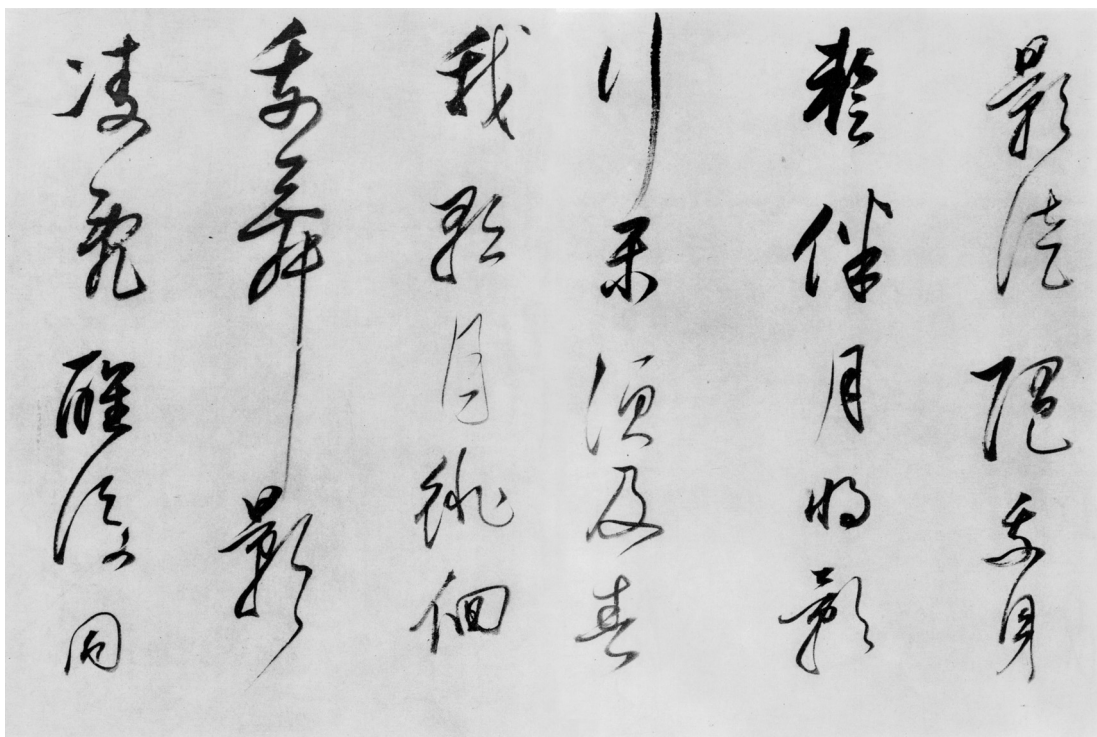 影徒隨我身
暫伴月將影
行樂須及春
我歌月徘徊
我舞影
凌亂醒後同